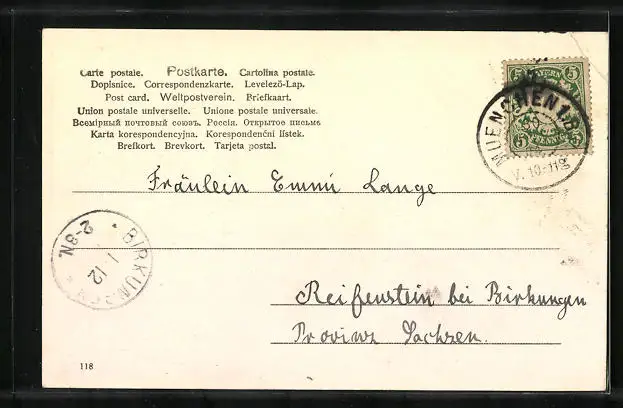 Carte postale. Postkarte. Cartolina postale.
Dopisnice. Correspondenzkarte. Levelező-Lap.
Post card. Weltpostverein. Briefkaart.
Union postale universelle. Unione postale universale.
Всемірный почтовый союзъ. Россія. Открытое письмо
Karta korespondencyjna. Korespondenční lístek.
Brefkort. Brevkort. Tarjeta postal.
5 BAYERN 5
5 PFENNIG 5
MUENCHEN
V. 10-11
Fräulein Emmi Lange
BIRKUNGEN
1 12
2-3N.
Reifenstein bei Birkungen
Provinz Sachsen.
118